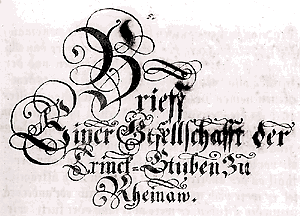 Brieff
Einer Gsellschafft der
Trinck=Stuben zu
Rheinaw.